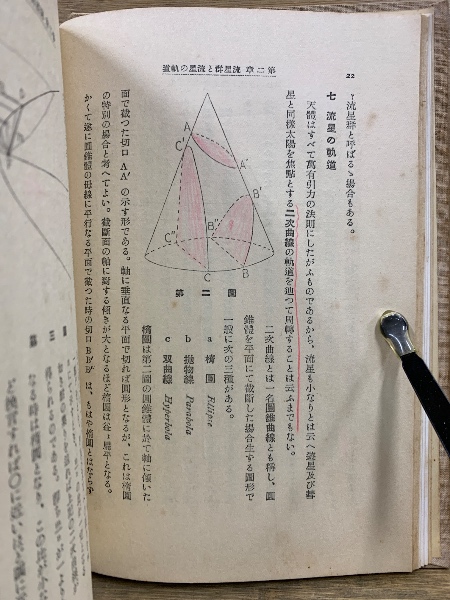 第二章 流星群と流星の軌道
22
〻流星群と呼ばるゝ場合もある。
七 流星の軌道
天體はすべて萬有引力の法則にしたがふものであるから、流星も小なりとは云へ遊星及び彗
星と同樣太陽を焦點とする二次曲線の軌道を辿つて周轉することは云ふまでもない。
二次曲線とは一名圓錐曲線とも稱し、圓
錐體を平面にて截斷した場合生ずる圖形で
一般に次の三種がある。
a 橢圓 Ellipse
b 拋物線 Parabola
c 双曲線 Hyperbola
橢圓は第二圖の圓錐體に於て軸に傾いた
面で截つた切口 AA′ の示す形である。軸に垂直なる平面で切れば圓形となるが、これは橢圓
の特別の場合と考へてよい。截斷面の軸に對する傾きが大となるほど橢圓は益〻扁平となる。
かくて遂に圓錐體の母線に平行なる平面で截つた時の切口 BB′B″ は、もはや橢圓とはならず
A
C′
A′
B′
B″
C″
B
C
第二圖
第三